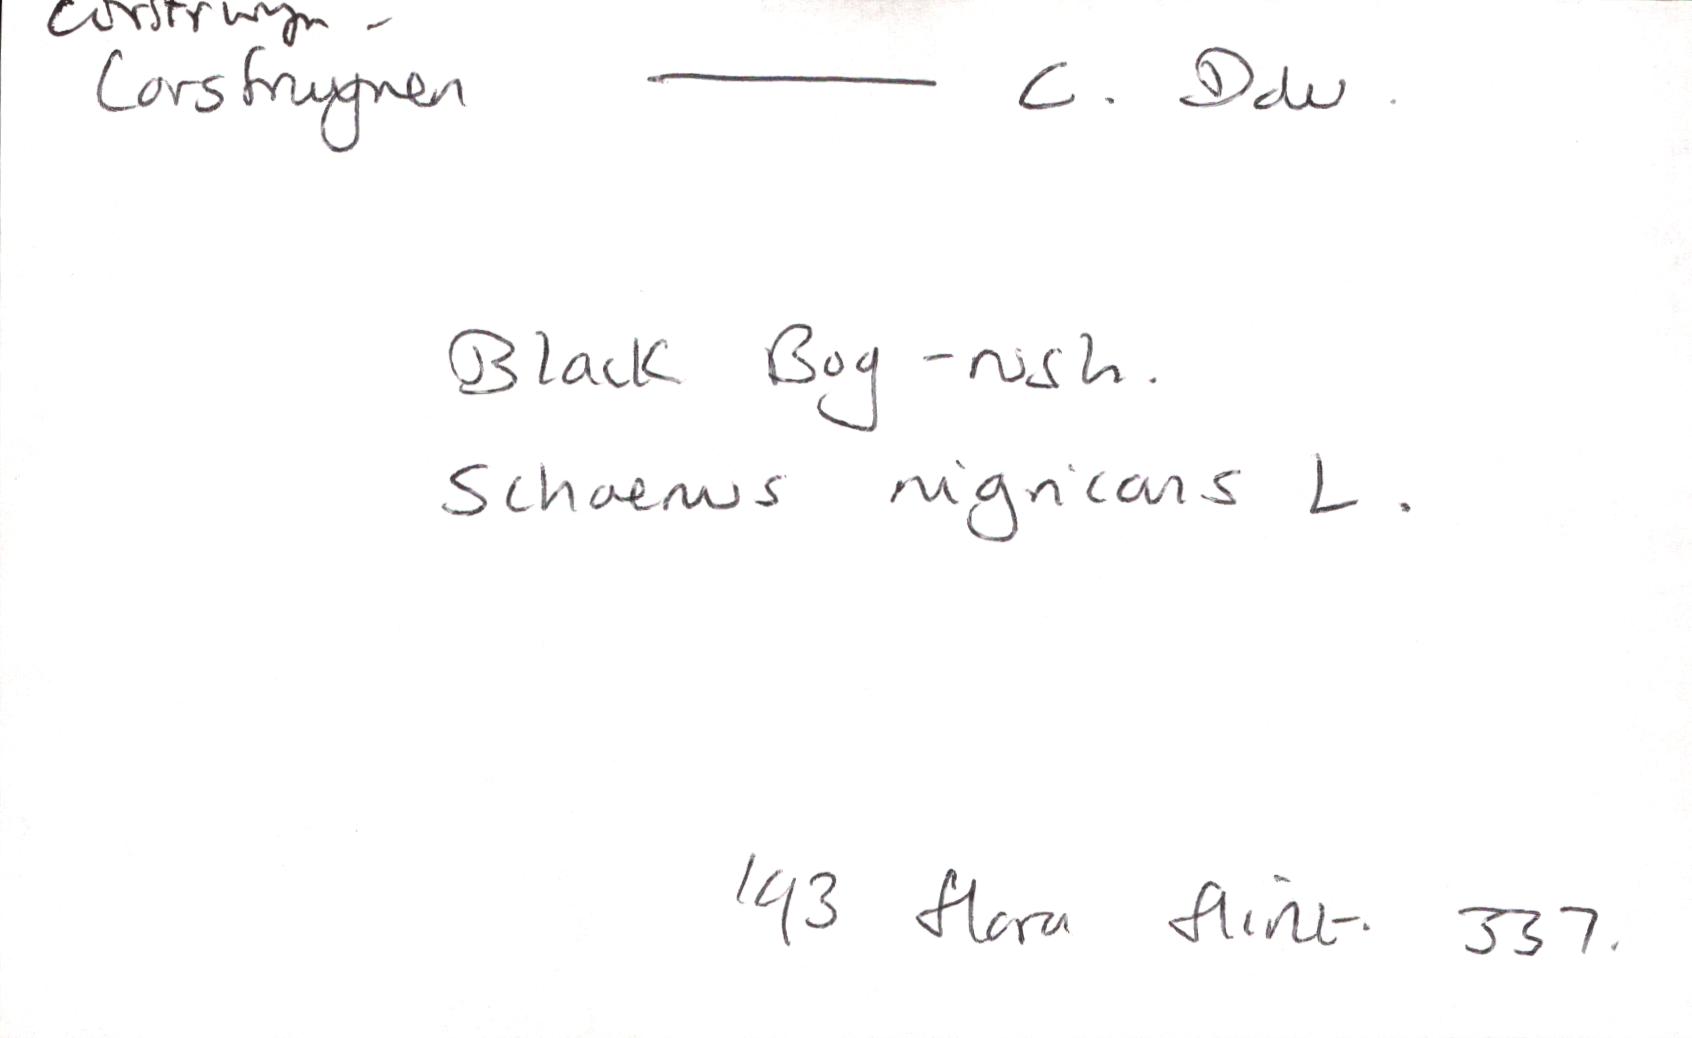 corstrwyn -
Corsfrwynen — C. Ddu.
Black Bog-rush.
Schoenus nigricans L.
'93 flora flint. 337.